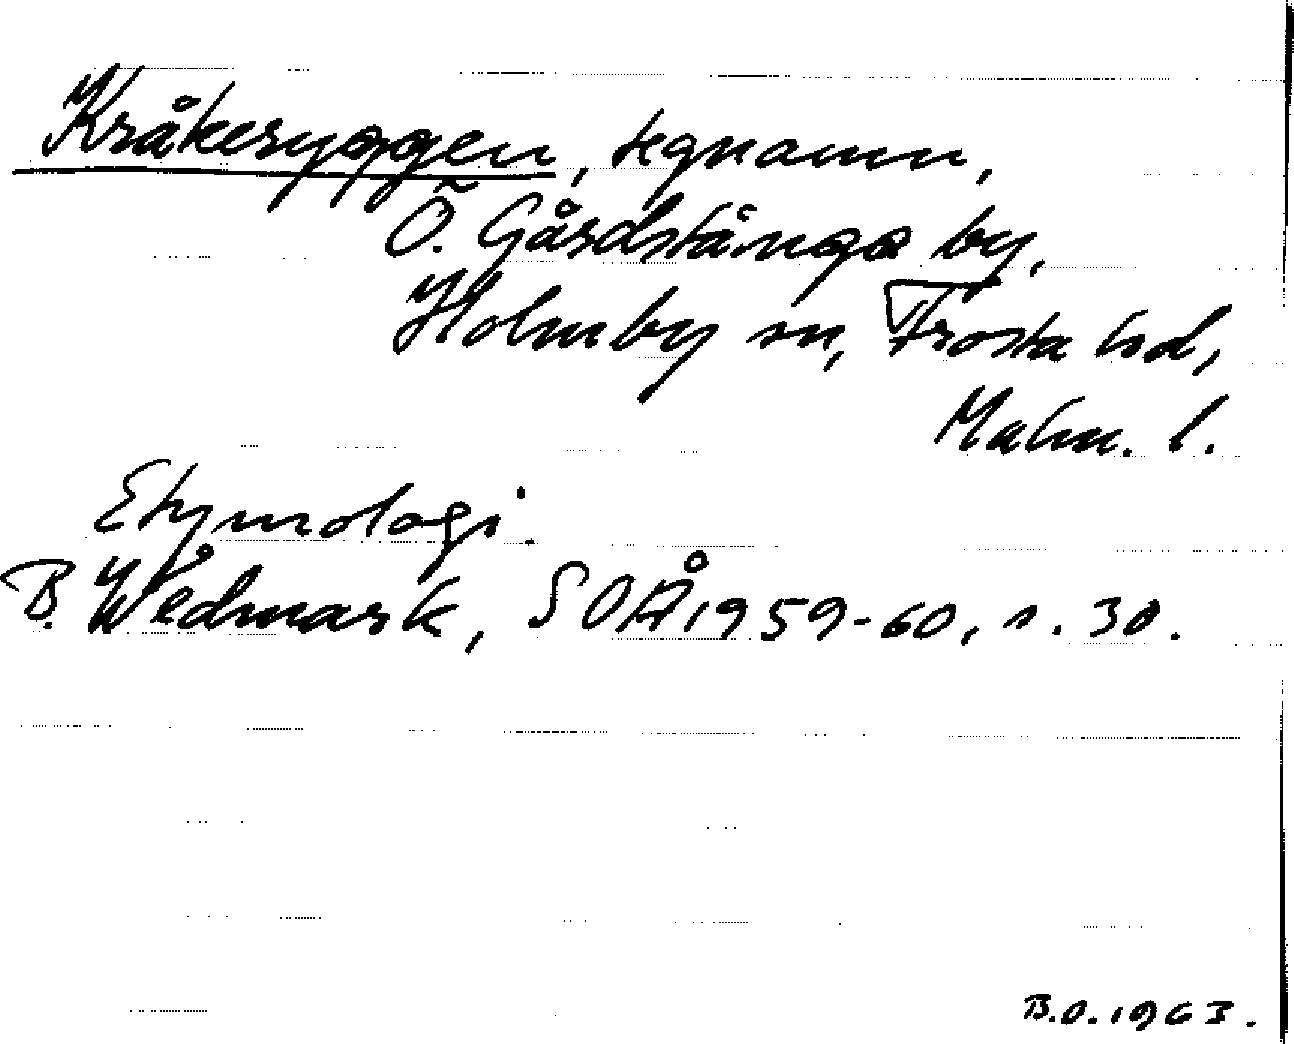 Kråkeryggen, tegnamn,
Ö. Gårdstånga by,
Holmby sn, Frosta hd,
Malm. l.
Etymologi.
B. Wedmark, SOÅ 1959-60, s. 30.
B.O. 1963.